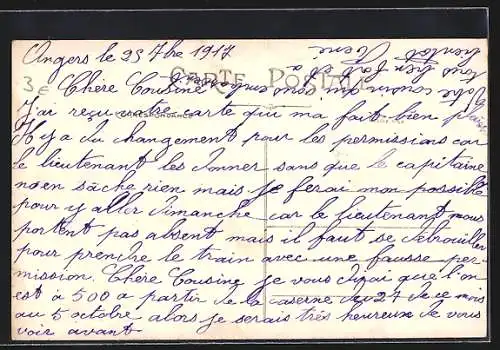 Angers le 25 7bre 1917
CARTE POSTALE
3€
Chère Cousine
J'ai reçu votre carte qui ma fait bien plaisir
Il y a du changement pour les permissions car
le lieutenant les donner sans que le capitaine
n'en sâche rien mais je ferai mon possible
pour y aller dimanche car le lieutenant nous
portent pas absent mais il faut se débrouiller
pour prendre le train avec une fausse per-
mission. Chère Cousine je vous dirai que l'on
est à 500 a partir de la caserne du 27 de ce mois
au 5 octobre alors je serais très heureux de vous
voir avant
Votre cousin qui vous embrasse
tous bien fort et a
bientot